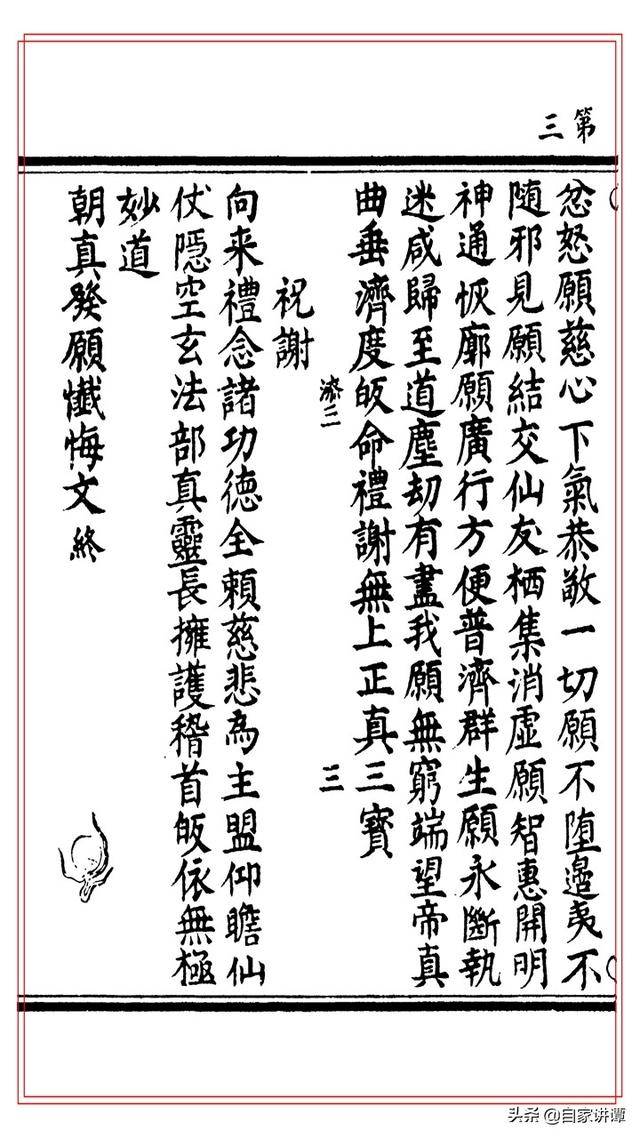 第三
忿怒願慈心下氣恭敬一切願不堕邉夷不
随邪見願結交仙友栖集消虚願智惠開明
神通恢廓願廣行方便普濟群生願永斷執
迷咸歸至道塵劫有盡我願無窮端望帝真
曲垂濟度皈命禮謝無上正真三寳
三
祝謝
向来禮念諸功徳全頼慈悲為主盟仰瞻仙
仗隱空玄法部真靈長擁護稽首皈依無極
妙道
朝真發願懺悔文終
头条 @自家讲谭